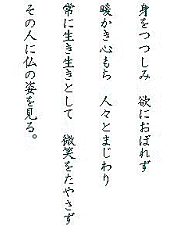 身をつつしみ 欲におぼれず
暖かき心もち 人々とまじわり
常に生き生きとして 微笑をたやさず
その人に仏の姿を見る。